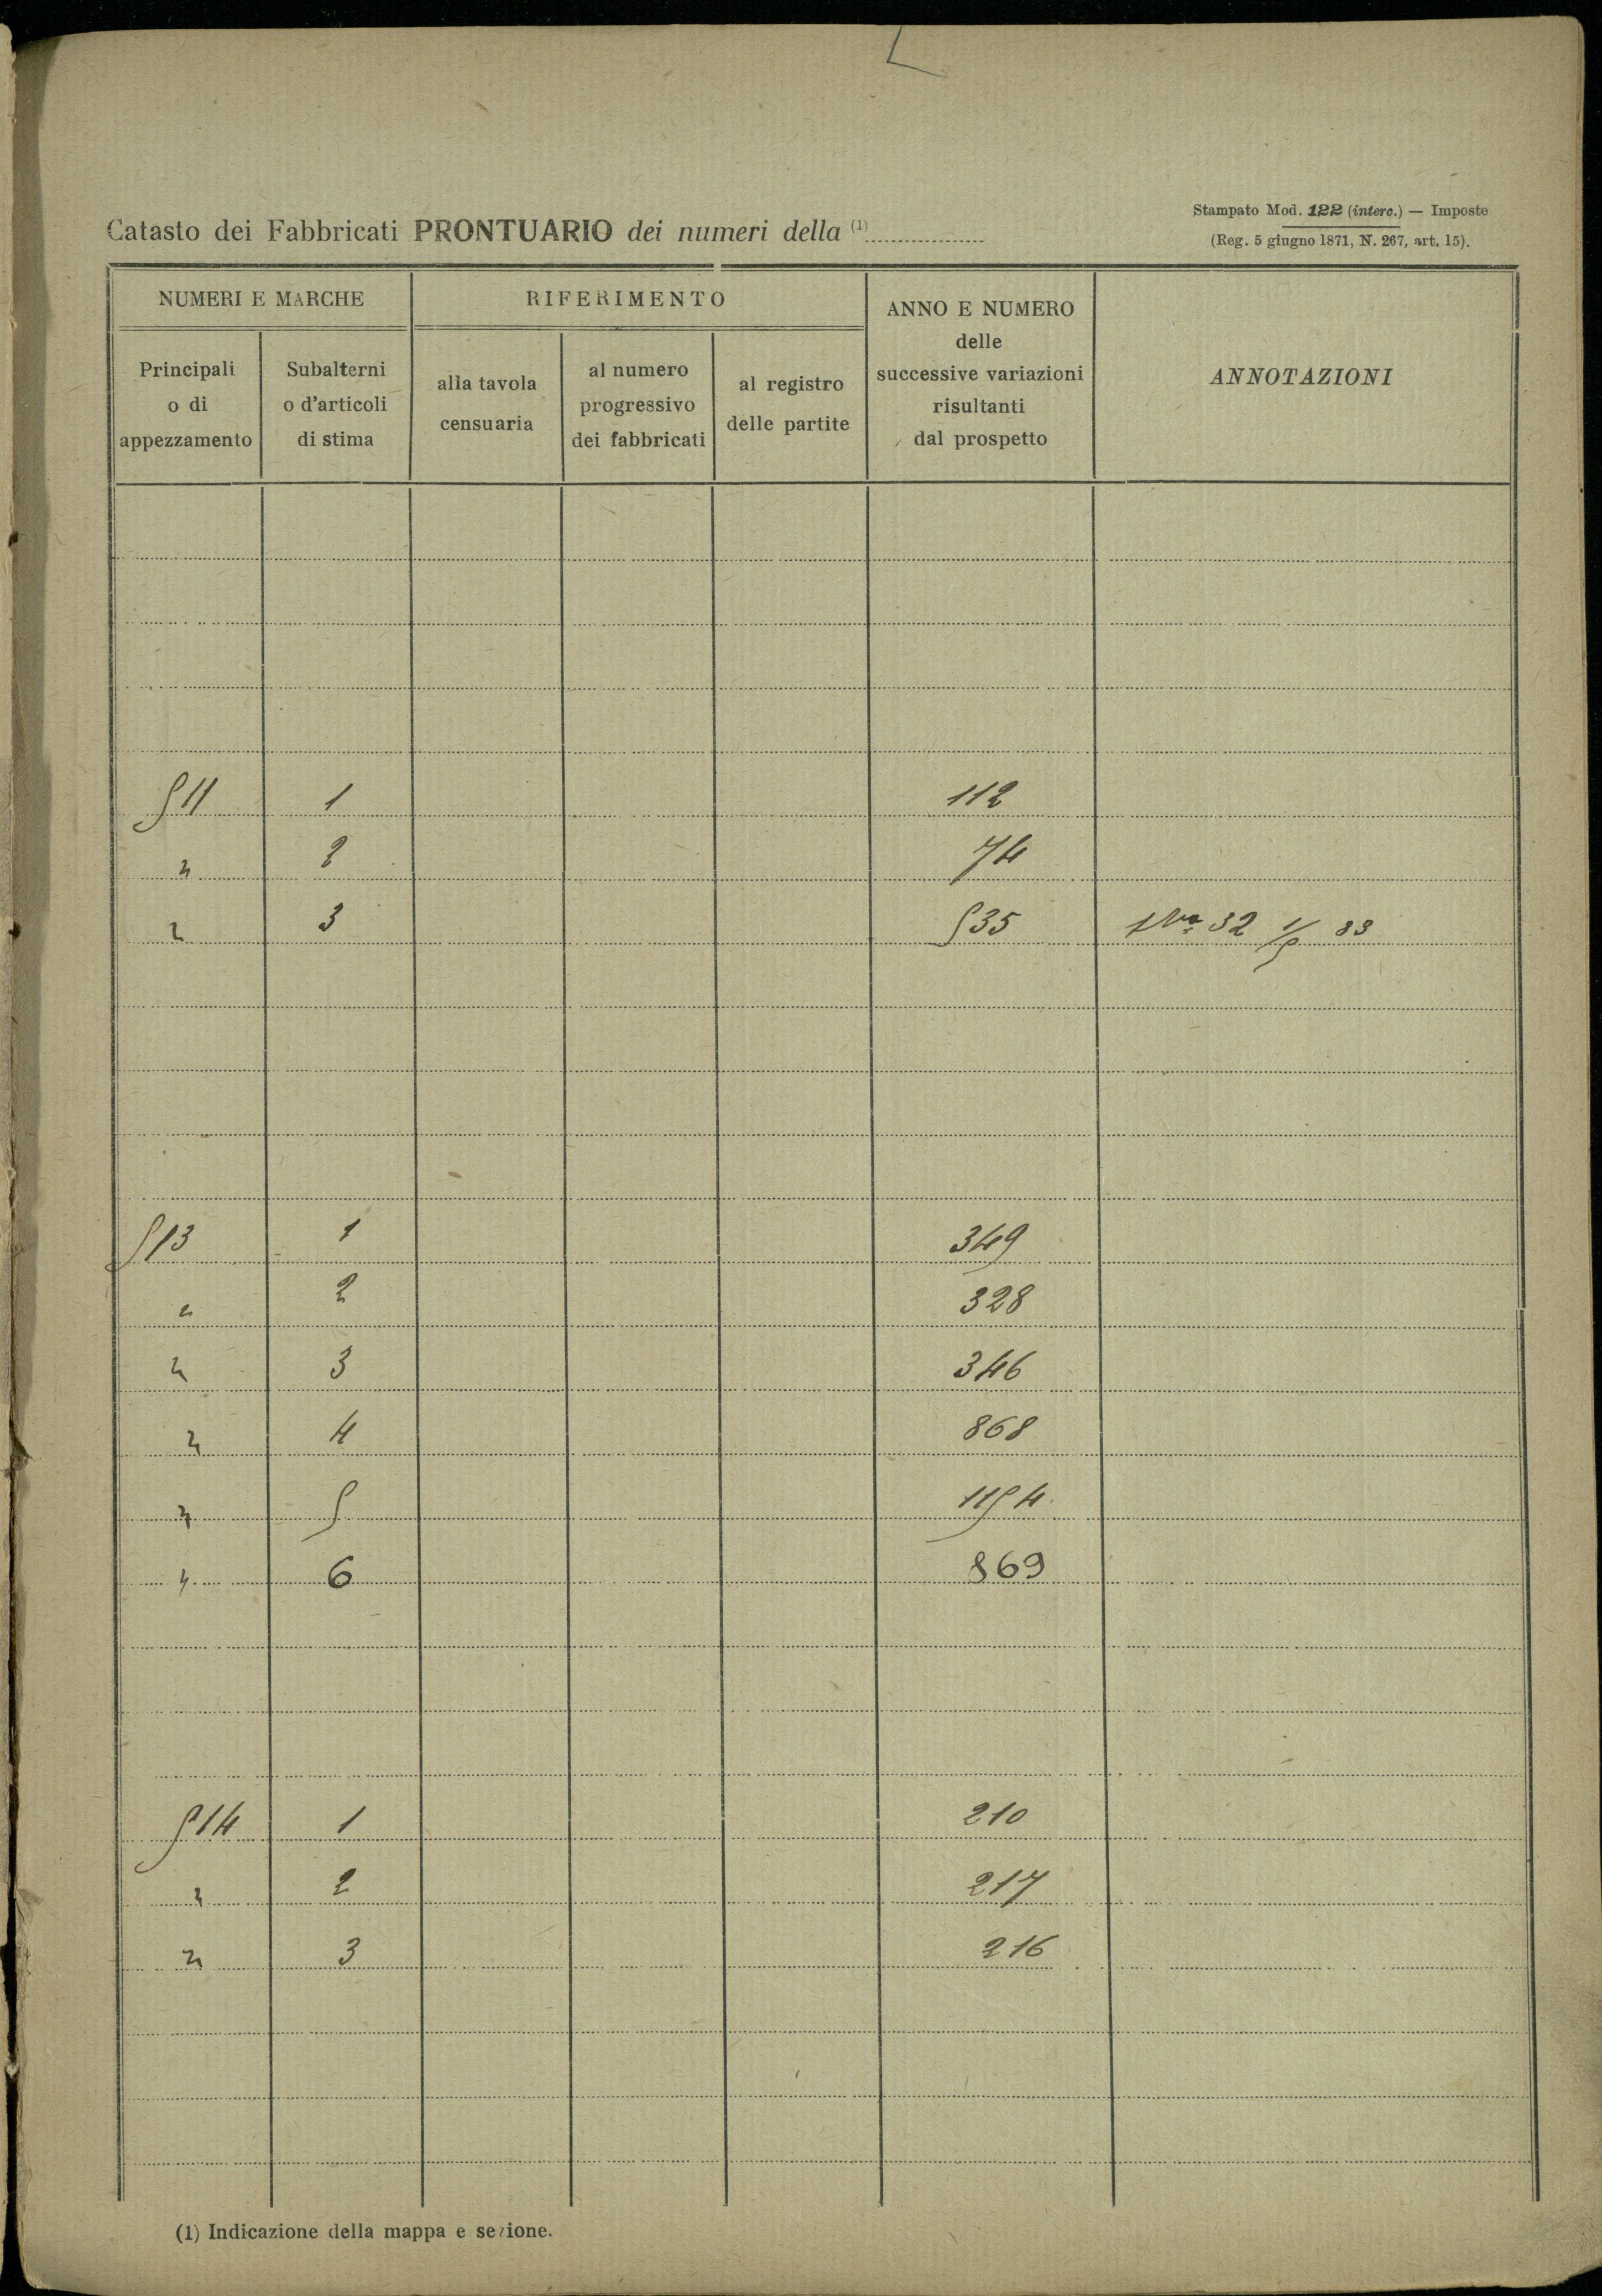 Catasto dei Fabbricati PRONTUARIO dei numeri della (1)
Stampato Mod. 122 (interc.) — Imposte
(Reg. 5 giugno 1871, N. 267, art. 15).
NUMERI E MARCHE
RIFERIMENTO
ANNO E NUMERO
delle
successive variazioni
risultanti
dal prospetto
ANNOTAZIONI
Principali
o di
appezzamento
Subalterni
o d'articoli
di stima
alla tavola
censuaria
al numero
progressivo
dei fabbricati
al registro
delle partite
511 1 112
" 2 74
" 3 535 32 1/5 83
513 1 349
" 2 328
" 3 346
" 4 868
" 5 1154
" 6 869
514 1 210
" 2 217
" 3 216
(1) Indicazione della mappa e sezione.